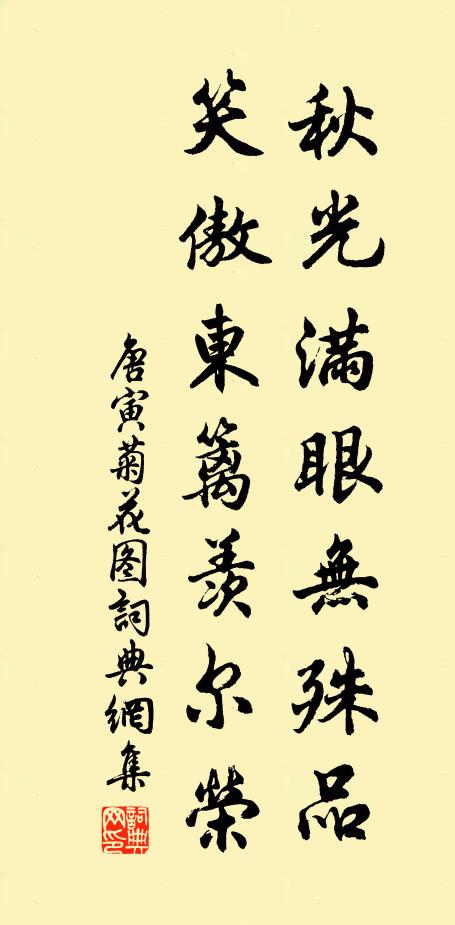 秋光滿眼無殊品
笑傲東籬羨尔榮
唐寅菊花图詞典網集
詞典网印